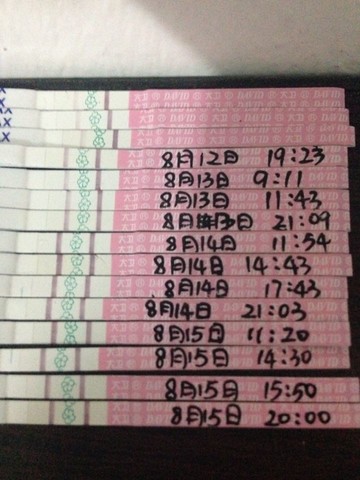 8月12日 19:23
8月13日 9:11
8月13日 11:43
8月13日 21:09
8月14日 11:54
8月14日 14:43
8月14日 17:43
8月14日 21:03
8月15日 11:20
8月15日 14:30
8月15日 15:50
8月15日 20:00